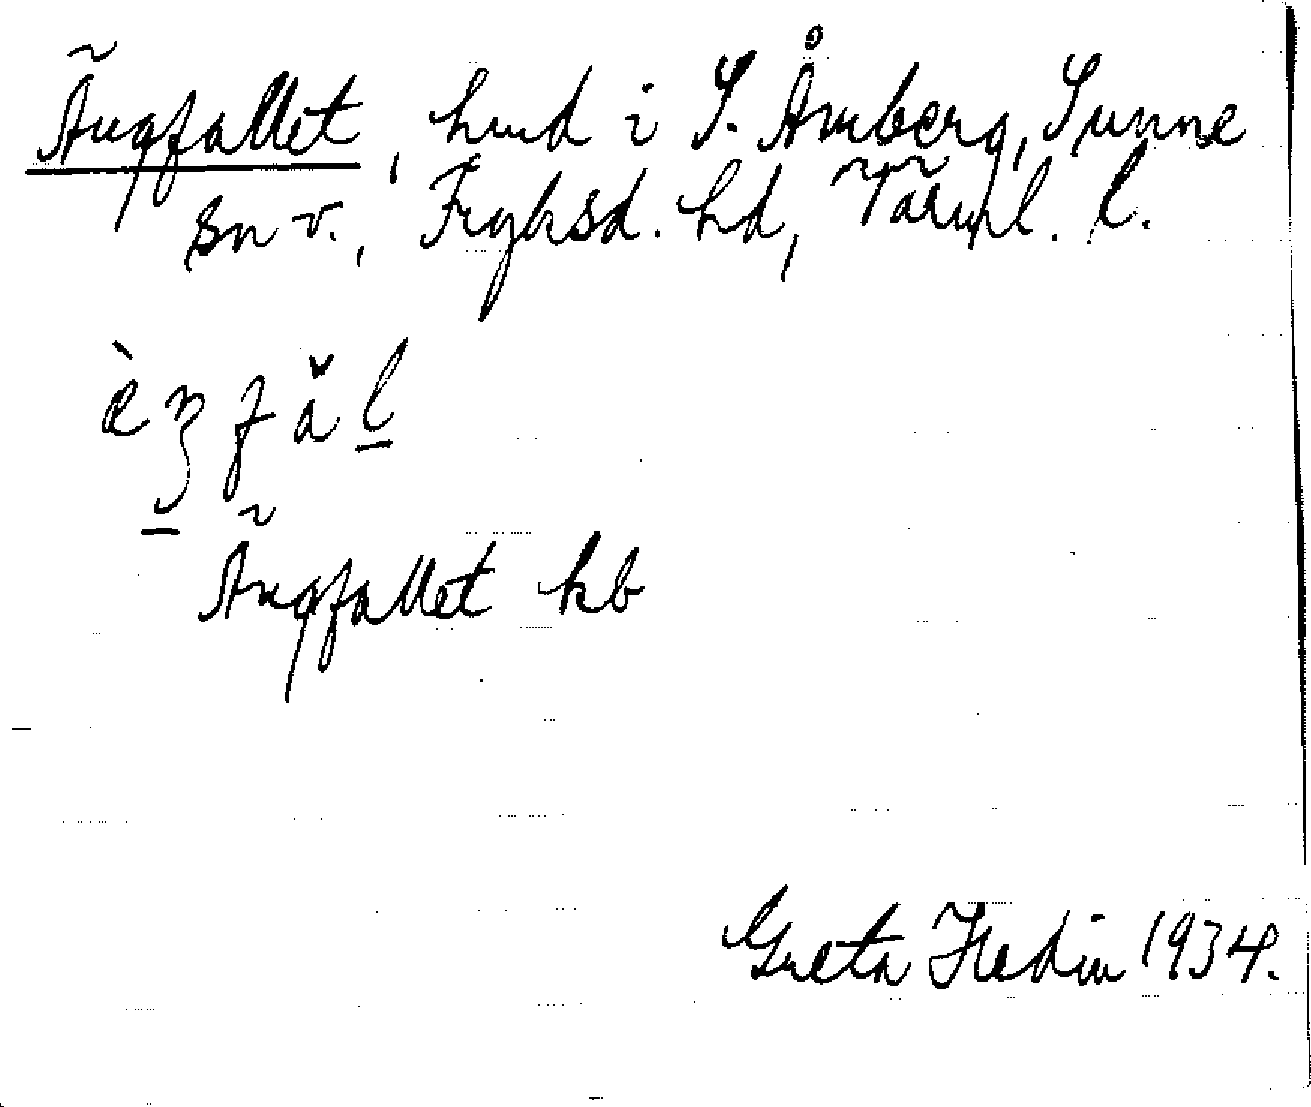 Ängfallet, hmd i S. Åmberg, Sunne
sn v., Fryksd. hd, Värml. l.
Ängfallet kb
Greta Hedin 1934.